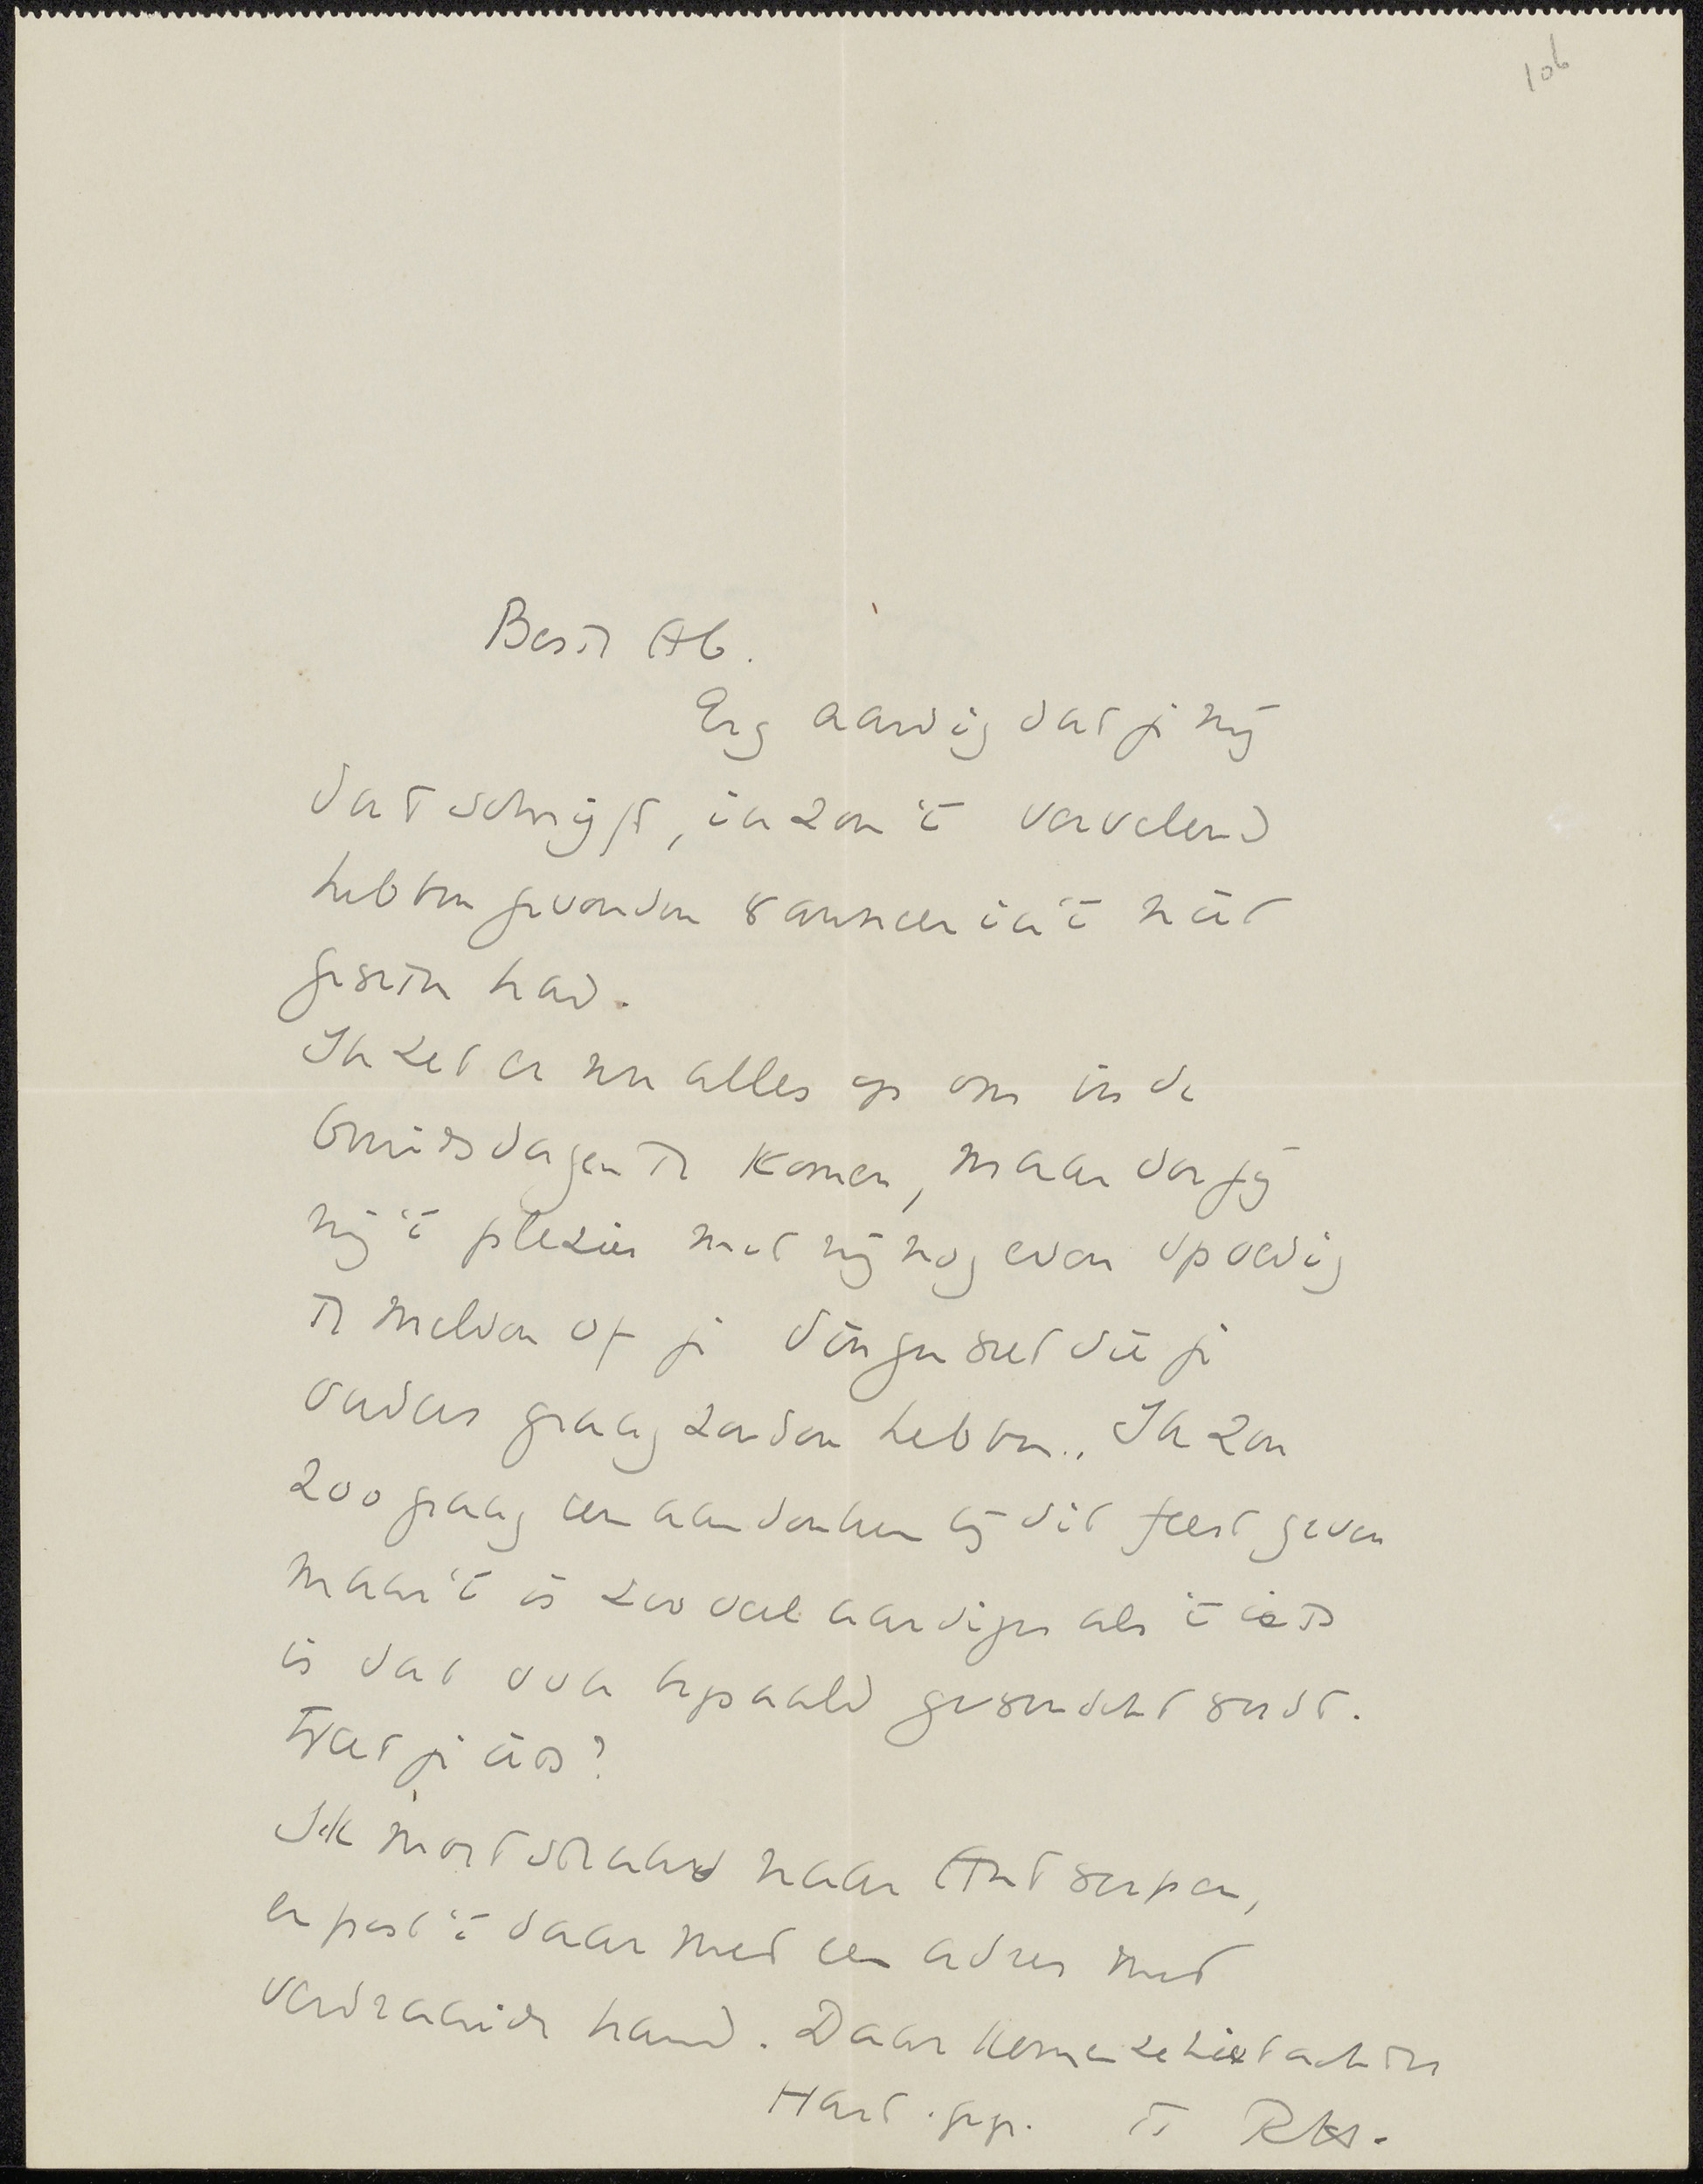 106
Beste Ab.
Erg aardig dat je mij
dat schrijft, ik zou 't vervelend
hebben gevonden wanneer ik 't niet
geweten had.
Ik zet er nu alles op om in de
bruidsdagen te komen, maar doe jij
mij 't plezier met mij nog even spoedig
te melden of je dingen weet die je
ouders graag zouden hebben.. Ik zou
zoo graag een aandenken bij dit feest geven
maar 't is zooveel aardiger als 't iets
is dat ook bepaald gewenscht wordt.
Weet je iets?
Ik moet straks naar Antwerpen,
en post 't daar met een adres met
verdraaide hand. Daar komen ze niet achter
Hart. gegr. tt RHS.